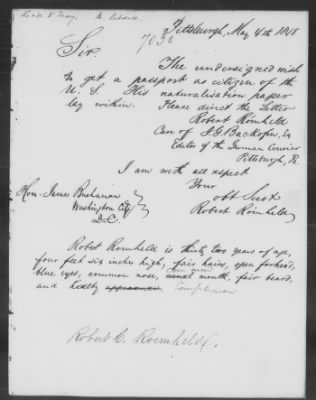 Pittsburgh, May 4th 1848
7030
Sir.
The undersigned wish
to get a passport as citizen of the
U. S. His naturalisation paper
lay within. Please direct the Letter
Robert Romheld
Care of J. G. Backofen,
Editor of the German Courier
Pittsburgh, Pa.
I am with all respect
Your
obt Servt
Robert Romheld
Hon. James Buchanan
Washington City
D.C.
Robert Romheld is thirty two years of age,
four feet six inches high, fair hairs, open forhead,
blue eyes, common nose, usual mouth, fair beard,
and healty appearance. Complexion
Robert C. Roemheld